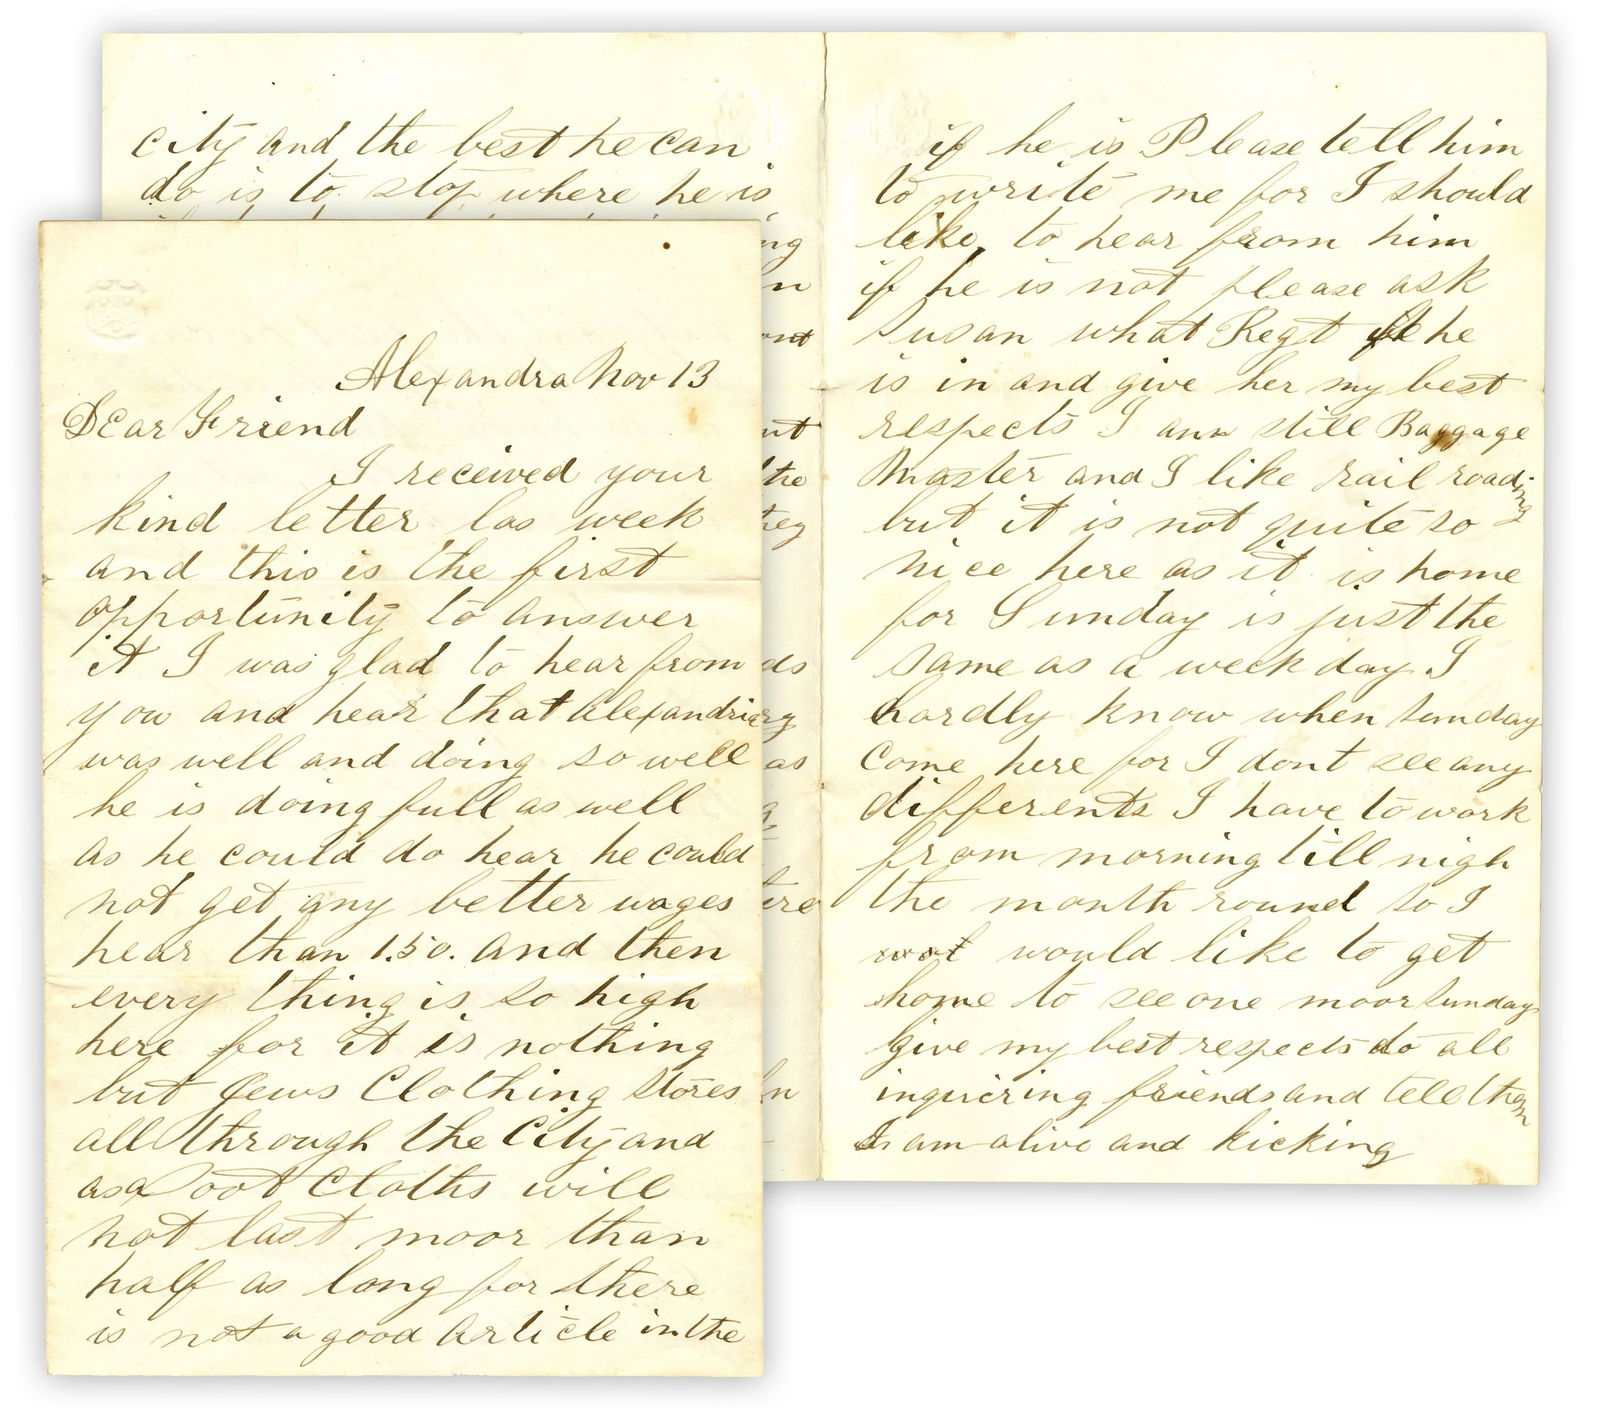 Alexandra Nov 13
Dear Friend
I received your
kind letter las week
and this is the first
opportunity to answer
it I was glad to hear from
you and hear that Alexandria
was well and doing so well
he is doing full as well
as he could do hear he could
not get any better wages
hear than 1.50. and then
every thing is so high
here for it is nothing
but Jews Clothing Stores
all through the City and
as a Soot Cloths will
not last moor than
half as long for there
is not a good article in the
city and the best he can
do is to stop where he is
if he is Please tell him
to write me for I should
like to hear from him
if he is not please ask
Susan what Regt he
is in and give her my best
respects I am still Baggage
Master and I like rail roading
but it is not quite so
nice here as it is home
for Sunday is just the
same as a week day I
hardly know when Sunday
come here for I dont see any
differents I have to work
from morning till nigh
the month round so I
would like to get
home to see one moor Sunday
give my best respects to all
inquiring friends and tell them
I am alive and kicking